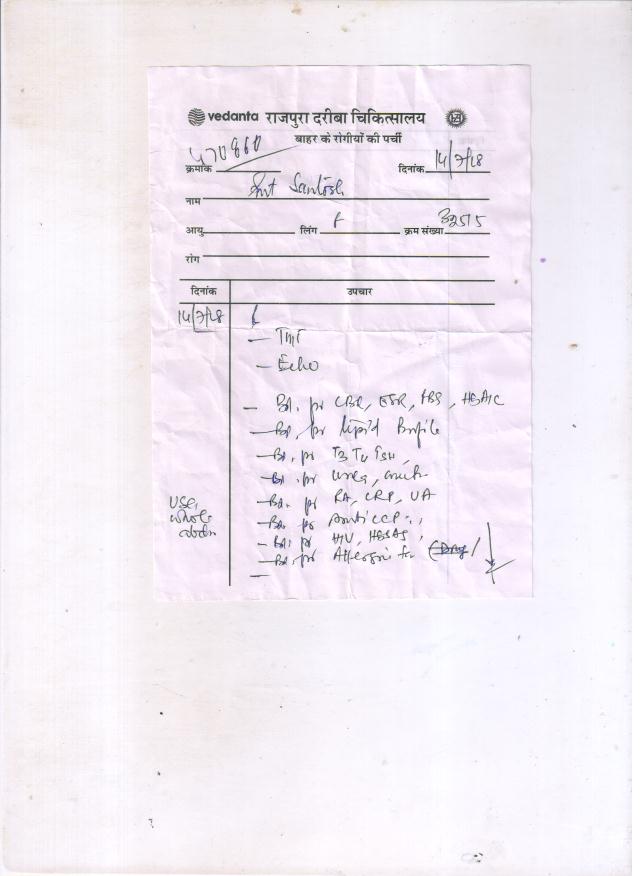 vedanta राजपुरा दरीबा चिकित्सालय
बाहर के रोगीयों की पर्ची
क्रमांक 470860 दिनांक 14/7/18
नाम Smt Santosh
आयु लिंग f क्रम संख्या 32515
रोग
दिनांक उपचार
14/7/18
— TMT
— Echo
— Bl. for CBC, ESR, FBS, HBA1C
— Bl. for Lipid Profile
— Bl. for T3 T4 TSH,
Bl. for Urea, creat.
— Bl. for RA, CRP, UA
USG whole abdn
— Bl. for Anti CCP
— Bl. for HIV, HBSAG
— Bl. for